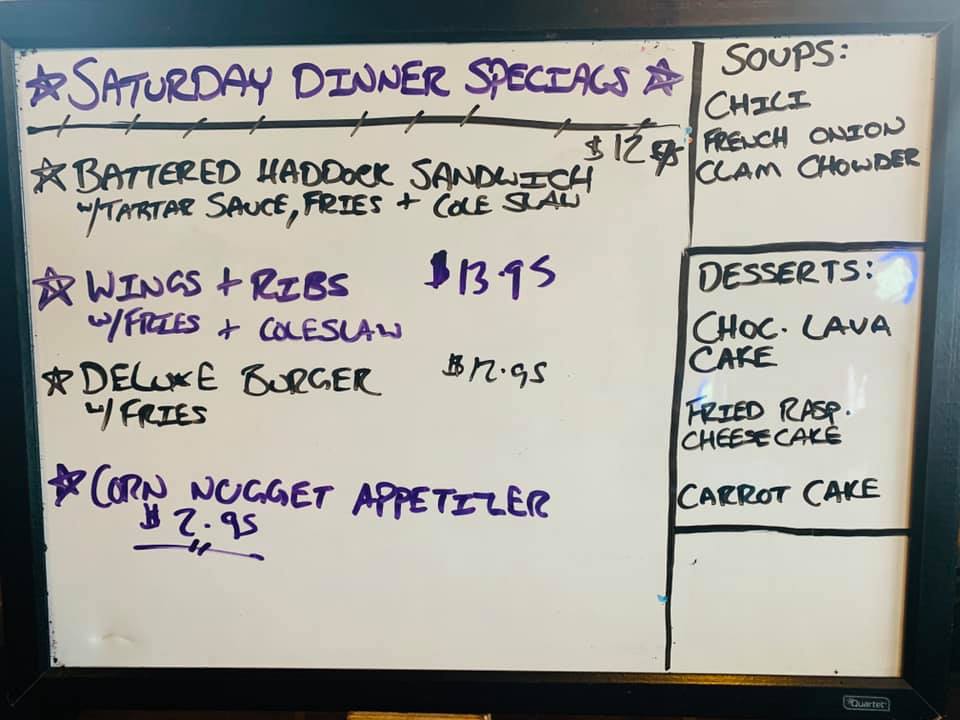 SATURDAY DINNER SPECIALS
$12
BATTERED HADDOCK SANDWICH
w/TARTAR SAUCE, FRIES + COLE SLAW
WINGS + RIBS $13.95
w/FRIES + COLESLAW
DELUXE BURGER $12.95
w/ FRIES
CORN NUGGET APPETIZER
$2.95
SOUPS:
CHILI
FRENCH ONION
CLAM CHOWDER
DESSERTS:
CHOC. LAVA
CAKE
FRIED RASP.
CHEESECAKE
CARROT CAKE
Quartet